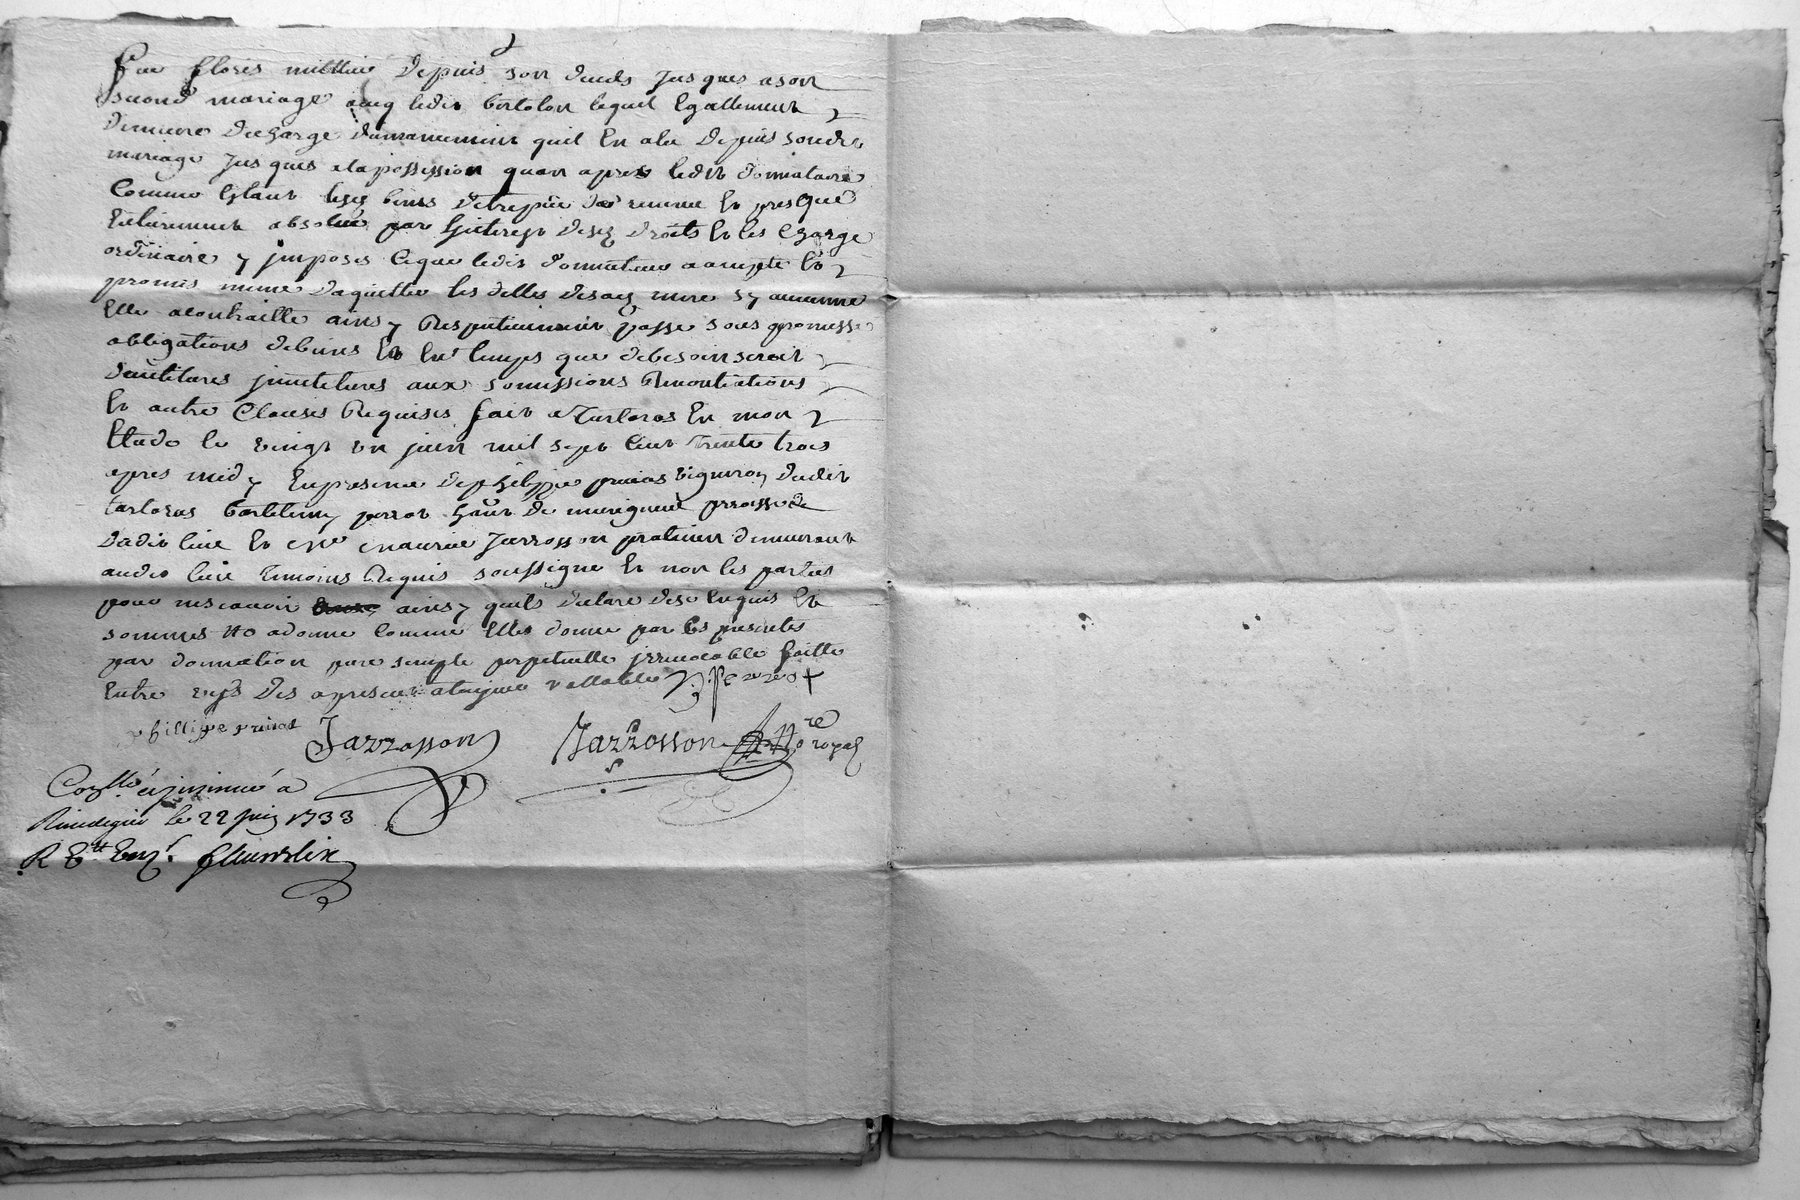 feu floris millier depuis son deceds jusques a son
second mariage avec ledit bertolon lequel egallement
demeure decharge du maniement quil en a eu depuis soudit
mariage jusques a la possession quan apres ledit donnataire
comme estant lesd biens de et presque
entierement absolue par linterest desd droits et les charge
ordinaire y imposés ce que ledit donnataire a accepté et
promis mesme daquitter les delles desad mere sy aucunne
elle a contraitte ainsy respectivement passe sous promesse
obbligations de biens et en temps que de besoin seroit
aux soumissions renontiations
et autre clauses requises fait a Tarloras en mon
etude le vingt un juin mil sept cent trente trois
apres midy en presence de phelippe privas vigneron dudit
tarloras bartelemy perrot habt de parroisse
dudit lieu et me maurice Jarrosson praticien demeurant
audit lieu temoins requis soussigne et non les parties
pour ne scavoir ainsy quils declare de ce enquis et
sommes no a donne comme elle donne par les presentes
par donnation pure simple perpetuelle irrevocable faitte
entre vifs des a present a toujour vallable B perrot
phillippe privas Jarrosson Jarrosson Nore royal
Conllé insinué a
le 22 juin 1733
R